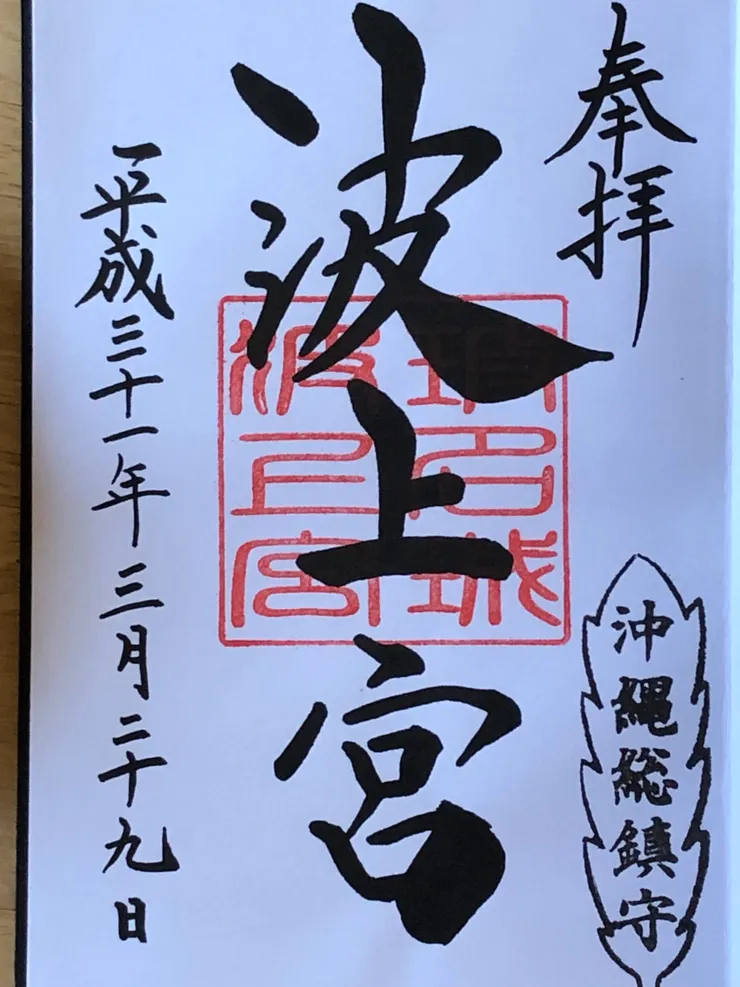 奉拝
沖縄総鎮守
波上宮
琉球
波上宮
平成三十一年三月二十九日